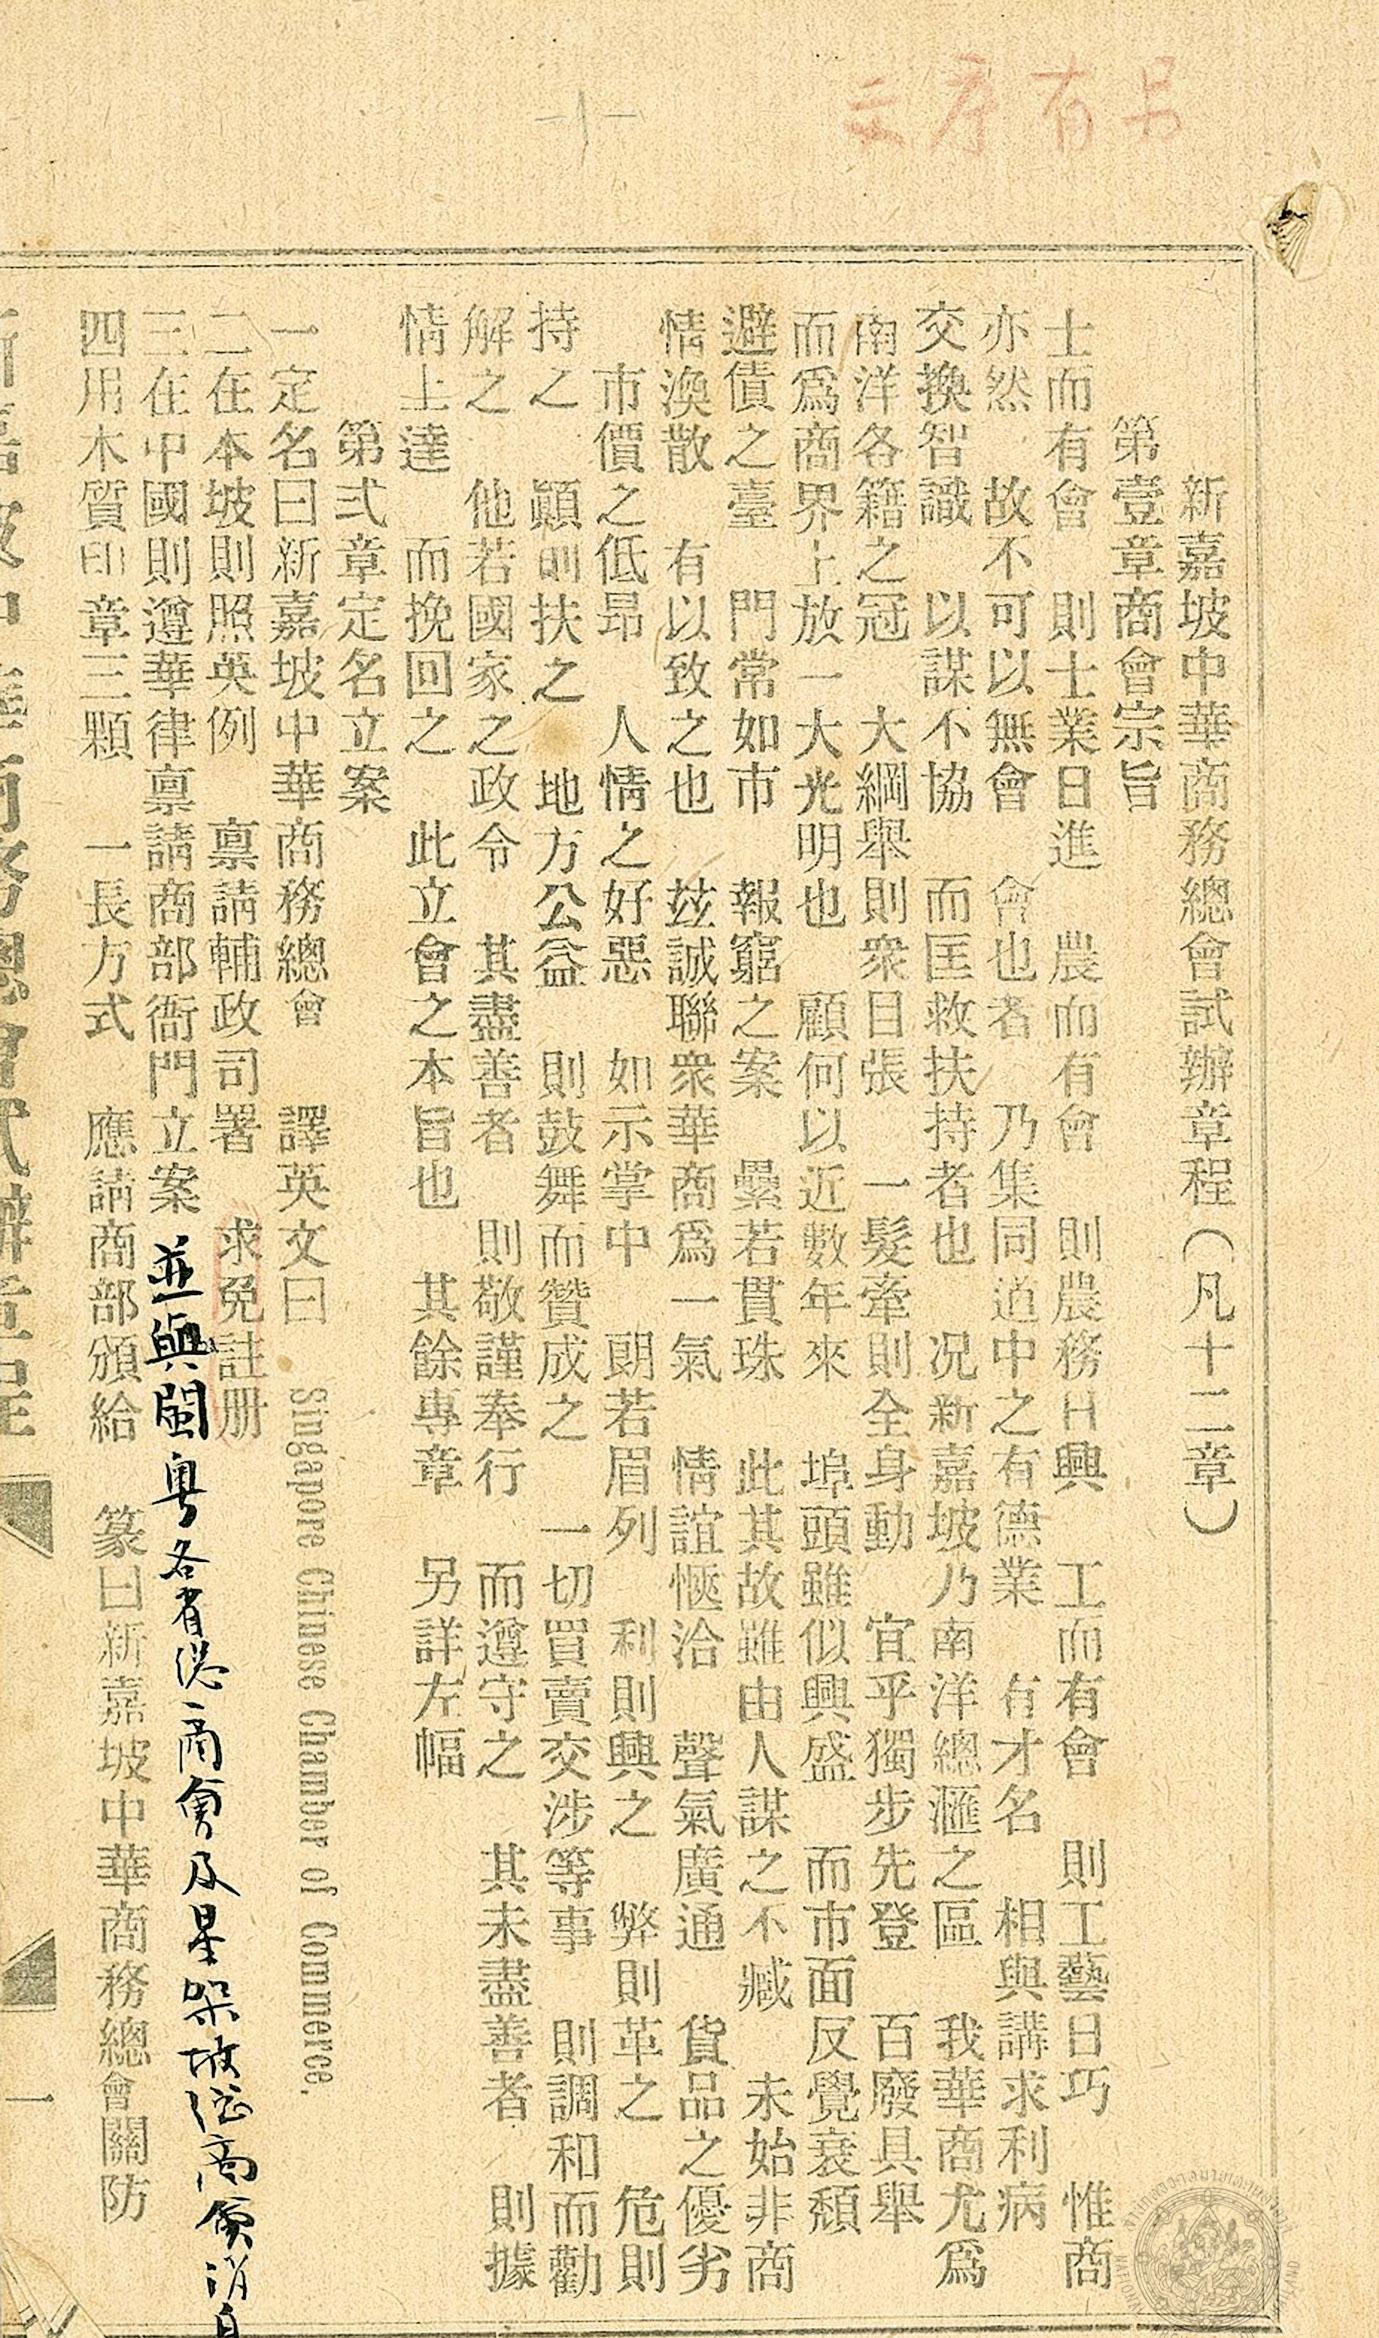 另有序文
新嘉坡中華商務總會試辦章程(凡十二章)
第壹章商會宗旨
士而有會 則士業日進 農而有會 則農務日興 工而有會 則工藝日巧 惟商
亦然 故不可以無會 會也者 乃集同道中之有德業 有才名 相與講求利病
交換智識 以謀不協 而匡救扶持者也 况新嘉坡乃南洋總滙之區 我華商尤爲
南洋各籍之冠 大綱舉則衆目張 一髮牽則全身動 宜乎獨步先登 百廢具舉
而爲商界上放一大光明也 顧何以近數年來 埠頭雖似興盛 而市面反覺衰頽
避債之臺 門常如市 報窮之案 纍若貫珠 此其故雖由人謀之不臧 未始非商
情渙散 有以致之也 玆誠聯衆華商爲一氣 情誼愜洽 聲氣廣通 貨品之優劣
市價之低昂 人情之好惡 如示掌中 朗若眉列 利則興之 弊則革之 危則
持之 顚則扶之 地方公益 則鼓舞而贊成之 一切買賣交涉等事 則調和而勸
解之 他若國家之政令 其盡善者 則敬謹奉行 而遵守之 其未盡善者 則據
情上達 而挽回之 此立會之本旨也 其餘專章 另詳左幅
第弍章定名立案
一定名曰新嘉坡中華商務總會 譯英文曰 Singapore Chinese Chamber of Commerce,
二在本坡則照英例 禀請輔政司署 求免註册
三在中國則遵華律禀請商部衙門立案 並與閩粵各省總商會及星架坡總商會消息
四用木質印章三顆 一長方式 應請商部頒給 篆曰新嘉坡中華商務總會關防
新嘉坡中華商務總會試辦章程
一